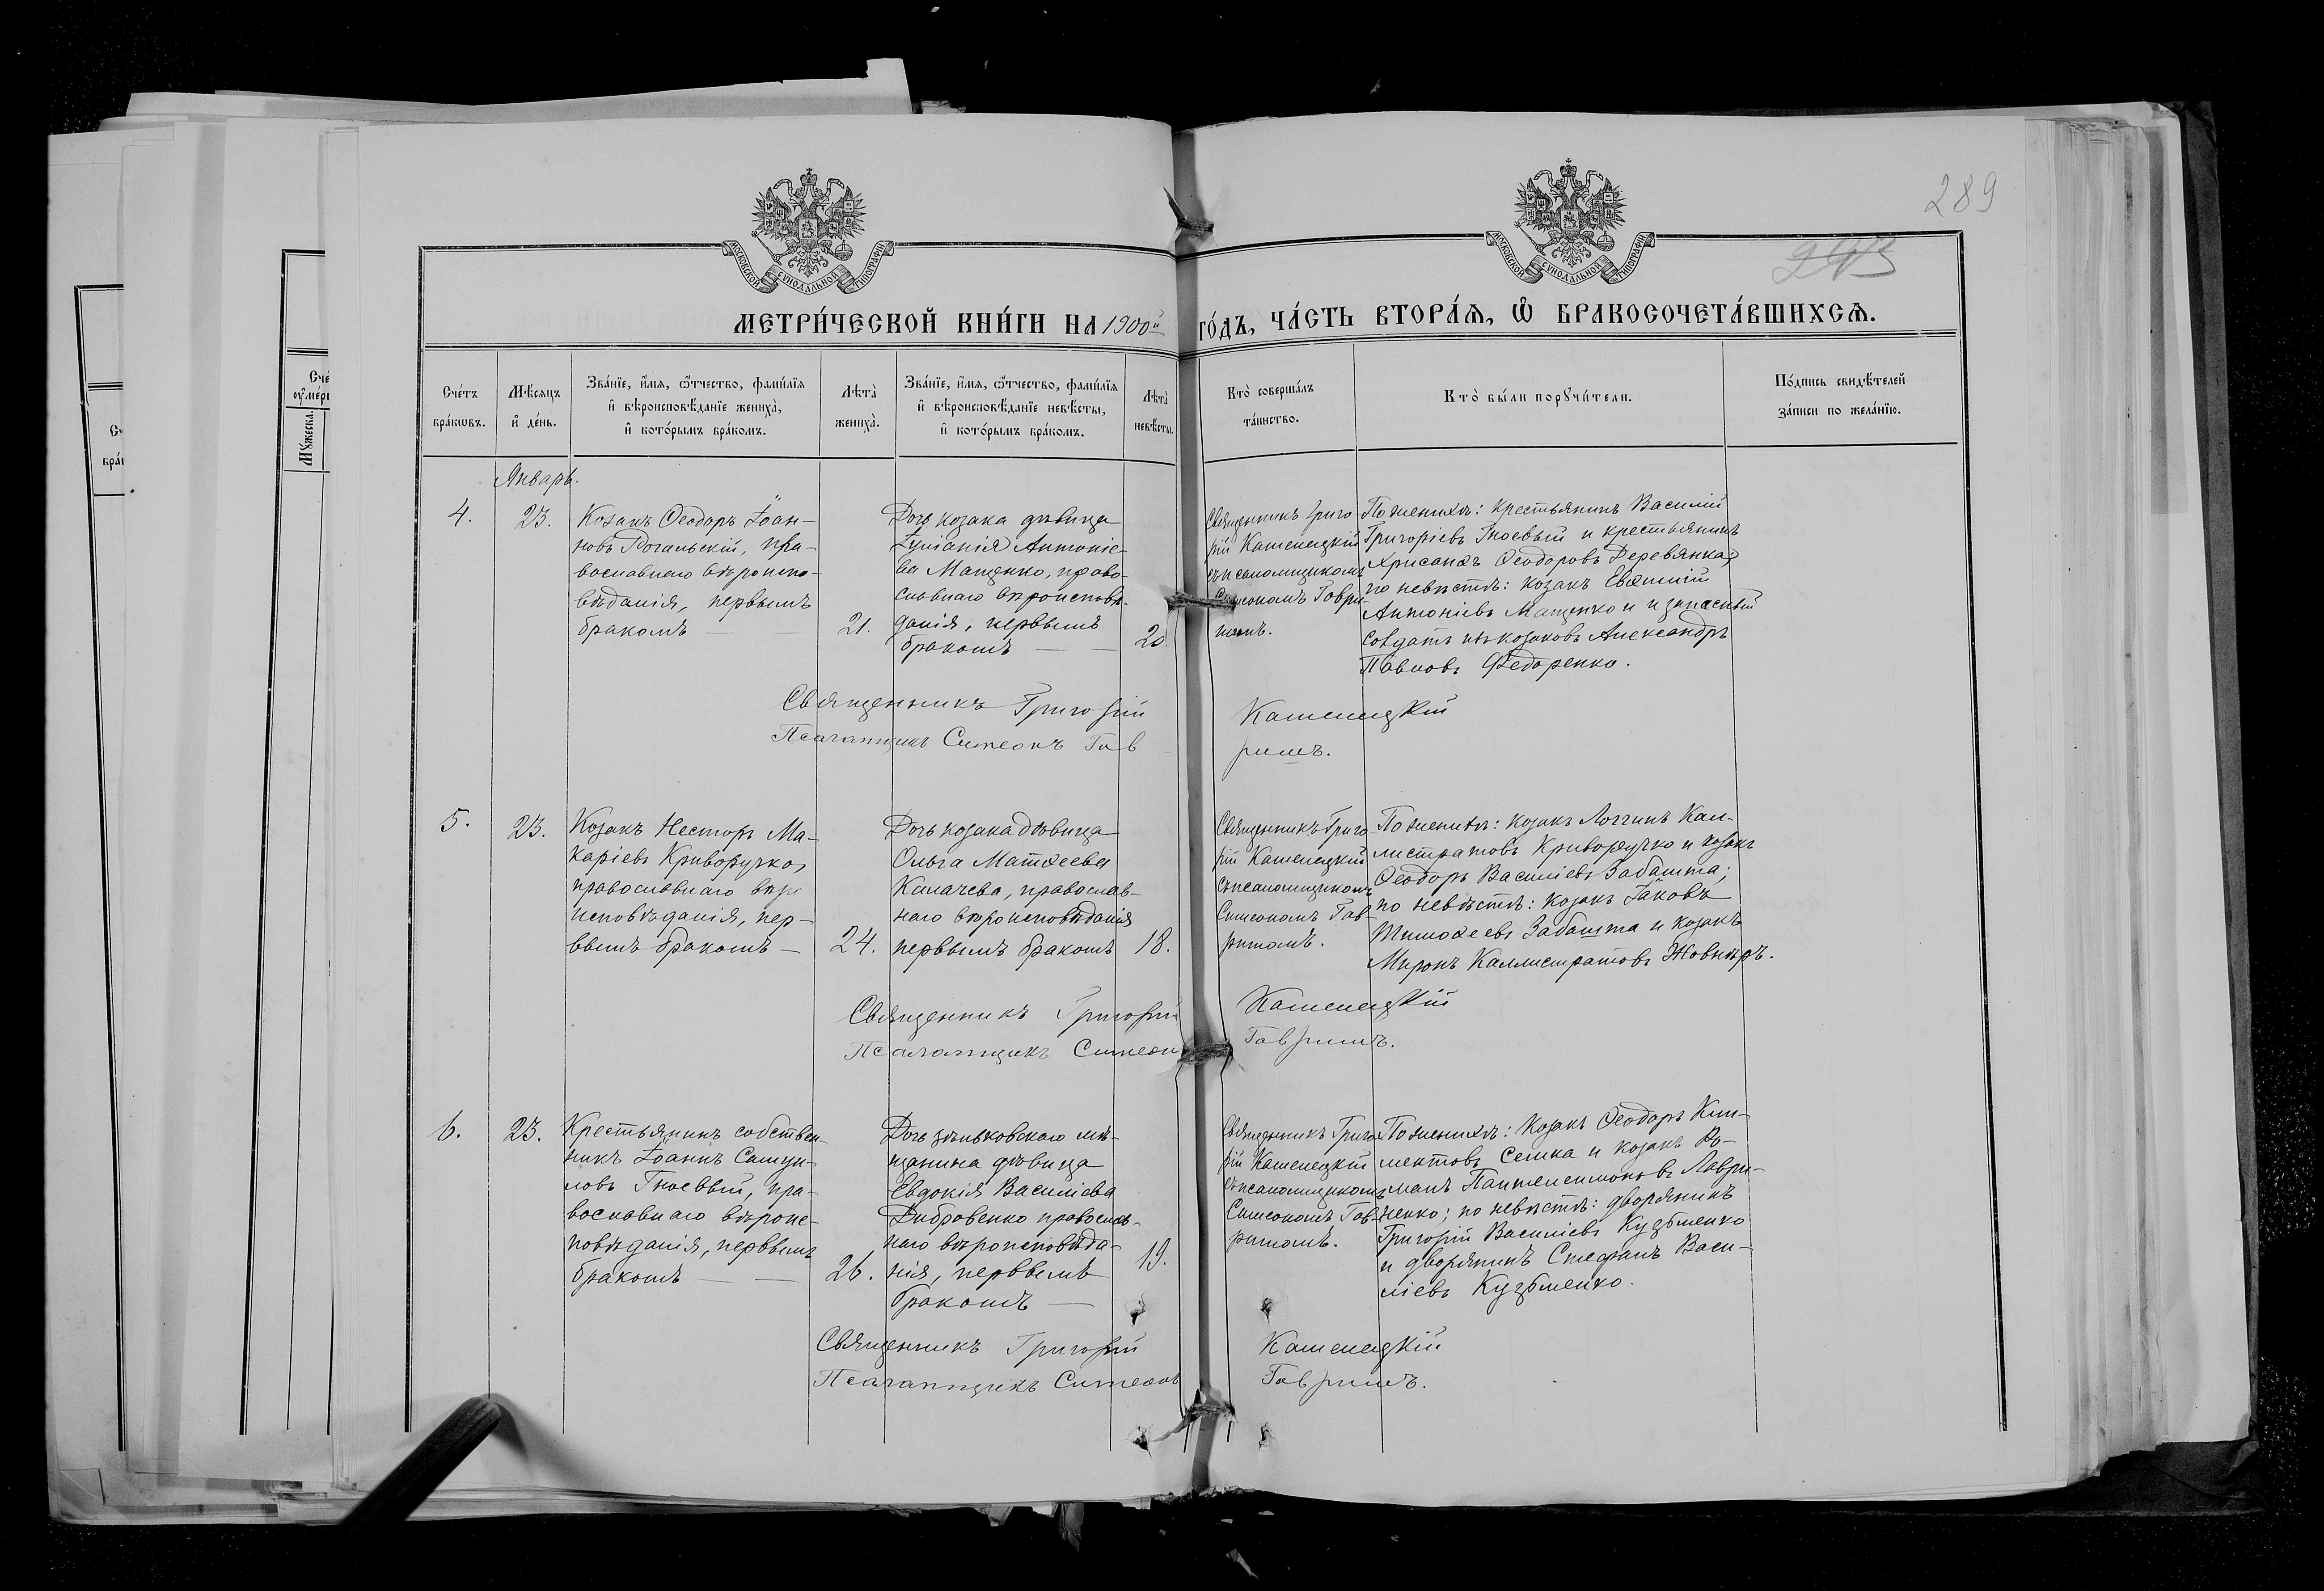 289
243
МОСКОВСКОЙ СУНОДАЛЬНОЙ ТИПОГРАФІИ
МОСКОВСКОЙ СУНОДАЛЬНОЙ ТИПОГРАФІИ
МЕТРИ́ЧЕСКОЙ КНИ́ГИ НА 1900й
ГО́ДЪ, ЧА́СТЬ ВТОРА́Ѧ, Ѡ҆ БРАКОСОЧЕТА́ВШИХСѦ.
Сче́тъ
бра́кѡвъ.
Мѣ́сяцъ
и҆ де́нь.
Зва́нїе, и҆́мѧ, ѻ҆́тчество, фами́лїѧ
и҆ вѣроисповѣ́данїе жениха̀,
и҆ кото́рымъ бра́комъ.
Лѣта̀
жениха̀.
Зва́нїе, и҆́мѧ, ѻ҆́тчество, фами́лїѧ
и҆ вѣроисповѣ́данїе невѣ́сты,
и҆ кото́рымъ бра́комъ.
Лѣта̀
невѣ́сты.
Кто̀ соверша́лъ
та́инство.
Кто̀ бы́ли порꙋчи́тели.
По́дпись свидѣ́телей
за́писи по жела́нїю.
Январь.
4.
23.
Козакъ Ѳеодоръ Іоан-
новъ Рогальскій, пра-
вославнаго вѣроиспо-
вѣданія, первымъ
бракомъ
21.
Дочь козака дѣвица
Іуліанія Антоніе-
ва Мащенко, право-
славнаго вѣроисповѣ-
данія, первымъ
бракомъ
20
Священникъ Григо
рій Каменецкій
съ псаломщикомъ
Симеономъ Гаври-
По женихѣ: крестьянинъ Василій
Григоріевъ Гноевый и крестьянинъ
Хрисанѳъ Ѳеодоровъ Деревянка;
по невѣстѣ: козакъ Евѳимій
Антоніевъ Мащенко и запасный
солдатъ изъ козаковъ Александръ
Павловъ Ѳедоренко.
Священникъ Григорій Каменецкій
Псаломщикъ Симеонъ Гав
римъ.
5.
23.
Козакъ Несторъ Ма-
каріевъ Криворучко,
православнаго вѣро
исповѣданія, пер-
вымъ бракомъ
24.
Дочь козака дѣвица
Ольга Матѳеева
Калачева, православ-
наго вѣроисповѣданія
первымъ бракомъ
18.
Священникъ Григо
рій Каменецкій
съ псаломщикомъ
Симеономъ Гав-
римомъ.
По женихѣ: козакъ Логгинъ Кал-
листратовъ Криворучко и козакъ
Ѳеодоръ Василіевъ Забашта;
по невѣстѣ: козакъ Іаковъ
Тимоѳеевъ Забашта и козакъ
Миронъ Каллистратовъ Жовниръ.
Священникъ Григорій Каменецкій
Псаломщикъ Симеонъ Гавримъ.
6.
23.
Крестьянинъ собствен-
никъ Іоаннъ Самуи-
ловъ Гноевый, пра-
вославнаго вѣроис-
повѣданія, первымъ
бракомъ
26.
Дочь зѣньковскаго мѣ-
щанина дѣвица
Евдокія Василіева
Дибровенко православ-
наго вѣроисповѣда-
нія, первымъ
бракомъ
19.
Священникъ Григо
рій Каменецкій
съ псаломщикомъ
Симеономъ Гав-
римомъ.
По женихѣ: козакъ Ѳеодоръ Кли-
ментовъ Семка и козакъ Ро-
манъ Пантелеимоновъ Лаври-
ненко; по невѣстѣ: дворянинъ
Григорій Василіевъ Кузьменко
и дворянинъ Стефанъ Васи-
ліевъ Кузьменко.
Священникъ Григорій Каменецкій
Псаломщикъ Симеонъ Гавримъ.